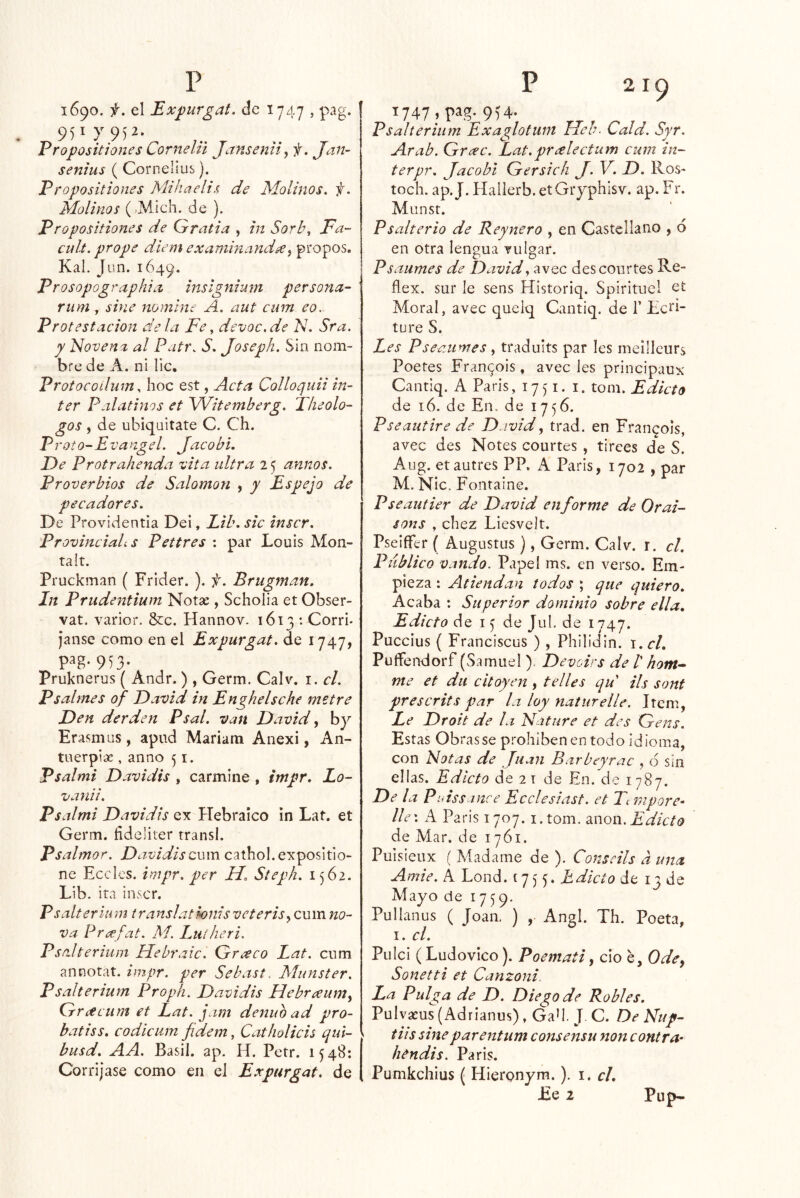 P
1690. ℣. el Expurgat. de 1747, pag.
951 y 952.
Propositiones Cornelii Jansenii, ℣. Jan-
senius ( Cornelius ).
Propositiones Mihaelis de Molinos. ℣.
Molinos ( Mich. de ).
Propositiones de Gratia , in Sorb, Fa-
cult. prope diem examinandæ, propos.
Kal. Jun. 1649.
Prosopographia insignium persona-
rum , sine nomine A. aut cum eo.
Protestacion de la Fe, devoc. de N. Sra.
y Novena al Patr. S. Joseph. Sin nom-
bre de A. ni lic.
Protocollum, hoc est, Acta Colloquii in-
ter Palatinos et Witemberg. Theolo-
gos , de ubiquitate C. Ch.
Proto-Evangel. Jacobi.
De Protrahenda vita ultra 25 annos.
Proverbios de Salomon , y Espejo de
pecadores.
De Providentia Dei, Lib. sic inscr.
Provinciales Pettres : par Louis Mon-
talt.
Pruckman ( Frider. ). ℣. Brugman.
In Prudentium Notæ , Scholia et Obser-
vat. varior. &c. Hannov. 1613 : Corri-
janse como en el Expurgat. de 1747,
pag. 953.
Pruknerus ( Andr. ) , Germ. Calv. 1. cl.
Psalmes of David in Enghelsche metre
Den derden Psal. van David, by
Erasmus, apud Mariam Anexi, An-
tuerpiæ , anno 51.
Psalmi Davidis , carmine , impr. Lo-
vanii.
Psalmi Davidis ex Hebraico in Lat. et
Germ. fideliter transl.
Psalmor. Davidis cum cathol. expositio-
ne Eccles. impr. per H. Steph. 1562.
Lib. ita inscr.
Psalterium translationis veteris, cum no-
va Præfat. M. Lutheri.
Psalterium Hebraic. Græco Lat. cum
annotat. impr. per Sebast. Munster.
Psalterium Proph. Davidis Hebræum,
Græcum et Lat. jam denuò ad pro-
batiss. codicum fidem, Catholicis qui-
busd. AA. Basil. ap. H. Petr. 1548:
Corrijase como en el Expurgat. de
P 219
1747, pag. 954.
Psalterium Exaglotum Heb. Cald. Syr.
Arab. Græc. Lat. prælectum cum in-
terpr. Jacobi Gersich J. V. D. Ros-
toch. ap. J. Hallerb. et Gryphisv. ap. Fr.
Munst.
Psalterio de Reynero , en Castellano , ó
en otra lengua vulgar.
Psaumes de David, avec des courtes Re-
flex. sur le sens Historiq. Spirituel et
Moral, avec quelq Cantiq. de l' Ecri-
ture S.
Les Pseaumes, traduits par les meilleurs
Poetes François, avec les principaux
Cantiq. A Paris, 1751. 1. tom. Edicto
de 16. de En. de 1756.
Pseautire de David, trad. en François,
avec des Notes courtes , tirees de S.
Aug. et autres PP. A Paris, 1702 , par
M. Nic. Fontaine.
Pseautier de David enforme de Orai-
sons , chez Liesvelt.
Pseiffer ( Augustus ), Germ. Calv. 1. cl.
Público vando. Papel ms. en verso. Em-
pieza : Atiendan todos ; que quiero.
Acaba : Superior dominio sobre ella.
Edicto de 15 de Jul. de 1747.
Puccius ( Franciscus ) , Philidin. 1. cl.
Puffendorf (Samuel). Devoirs de l' hom-
me et du citoyen, telles qu' ils sont
prescrits par la loy naturelle. Item,
Le Droit de la Nature et des Gens.
Estas Obras se prohiben en todo idioma,
con Notas de Juan Barbeyrac , ó sin
ellas. Edicto de 21 de En. de 1787.
De la Puissance Ecclesiast. et Tempore-
lle: A Paris 1707. 1. tom. anon. Edicto
de Mar. de 1761.
Puisieux ( Madame de ). Conseils à una
Amie. A Lond. 1755. Edicto de 13 de
Mayo de 1759.
Pullanus ( Joan. ) , Angl. Th. Poeta,
1. cl.
Pulci ( Ludovico ). Poemati, cio è, Ode,
Sonetti et Canzoni.
La Pulga de D. Diego de Robles.
Pulvæus (Adrianus), Gall. J. C. De Nup-
tiis sine parentum consensu non contra-
hendis. Paris.
Pumkchius ( Hieronym. ). 1. cl.
Ee 2 Pup-